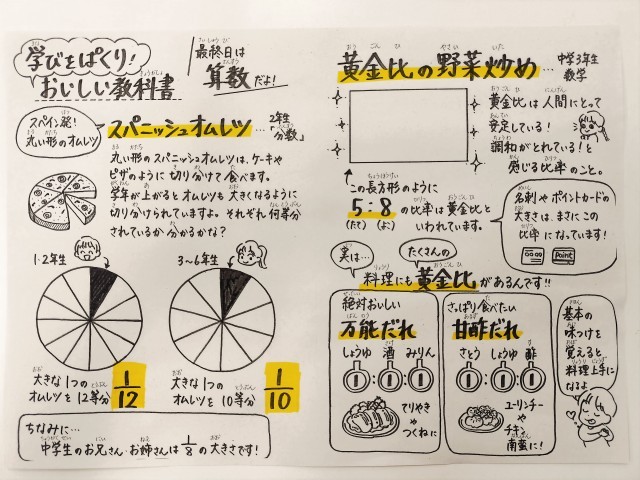 学びをぱくり!
おいしい教科書
最終日は
算数だよ!
スペイン発!
丸い形のオムレツ
スパニッシュオムレツ…2年生「分数」
丸い形のスパニッシュオムレツは、ケーキや
ピザのように切り分けて食べます。
学年が上がるとオムレツも大きくなるように
切り分けられていますよ。それぞれ何等分
されているか分かるかな?
1・2年生
3~6年生
大きな1つの
オムレツを12等分
1/12
大きな1つの
オムレツを10等分
1/10
ちなみに…
中学生のお兄さん・お姉さんは1/8の大きさです!
黄金比の野菜炒め…中学3年生
数学
黄金比は人間にとって
安定している!
調和がとれている!と
感じる比率のこと。
この長方形のように
5:8の比率は黄金比と
(たて)(よこ)いわれています。
名刺やポイントカードの
大きさは、まさにこの
比率になっています!
Point
実は…
たくさんの
料理にも黄金比があるんです!!
絶対おいしい
万能だれ
しょうゆ 酒 みりん
1:1:1
てりやき
や
つくねに
さっぱり食べたい
甘酢だれ
さとう しょうゆ 酢
1:1:1
ユーリンチー
や
チキン
南蛮に!
基本の
味つけを
覚えると
料理上手に
なるよ